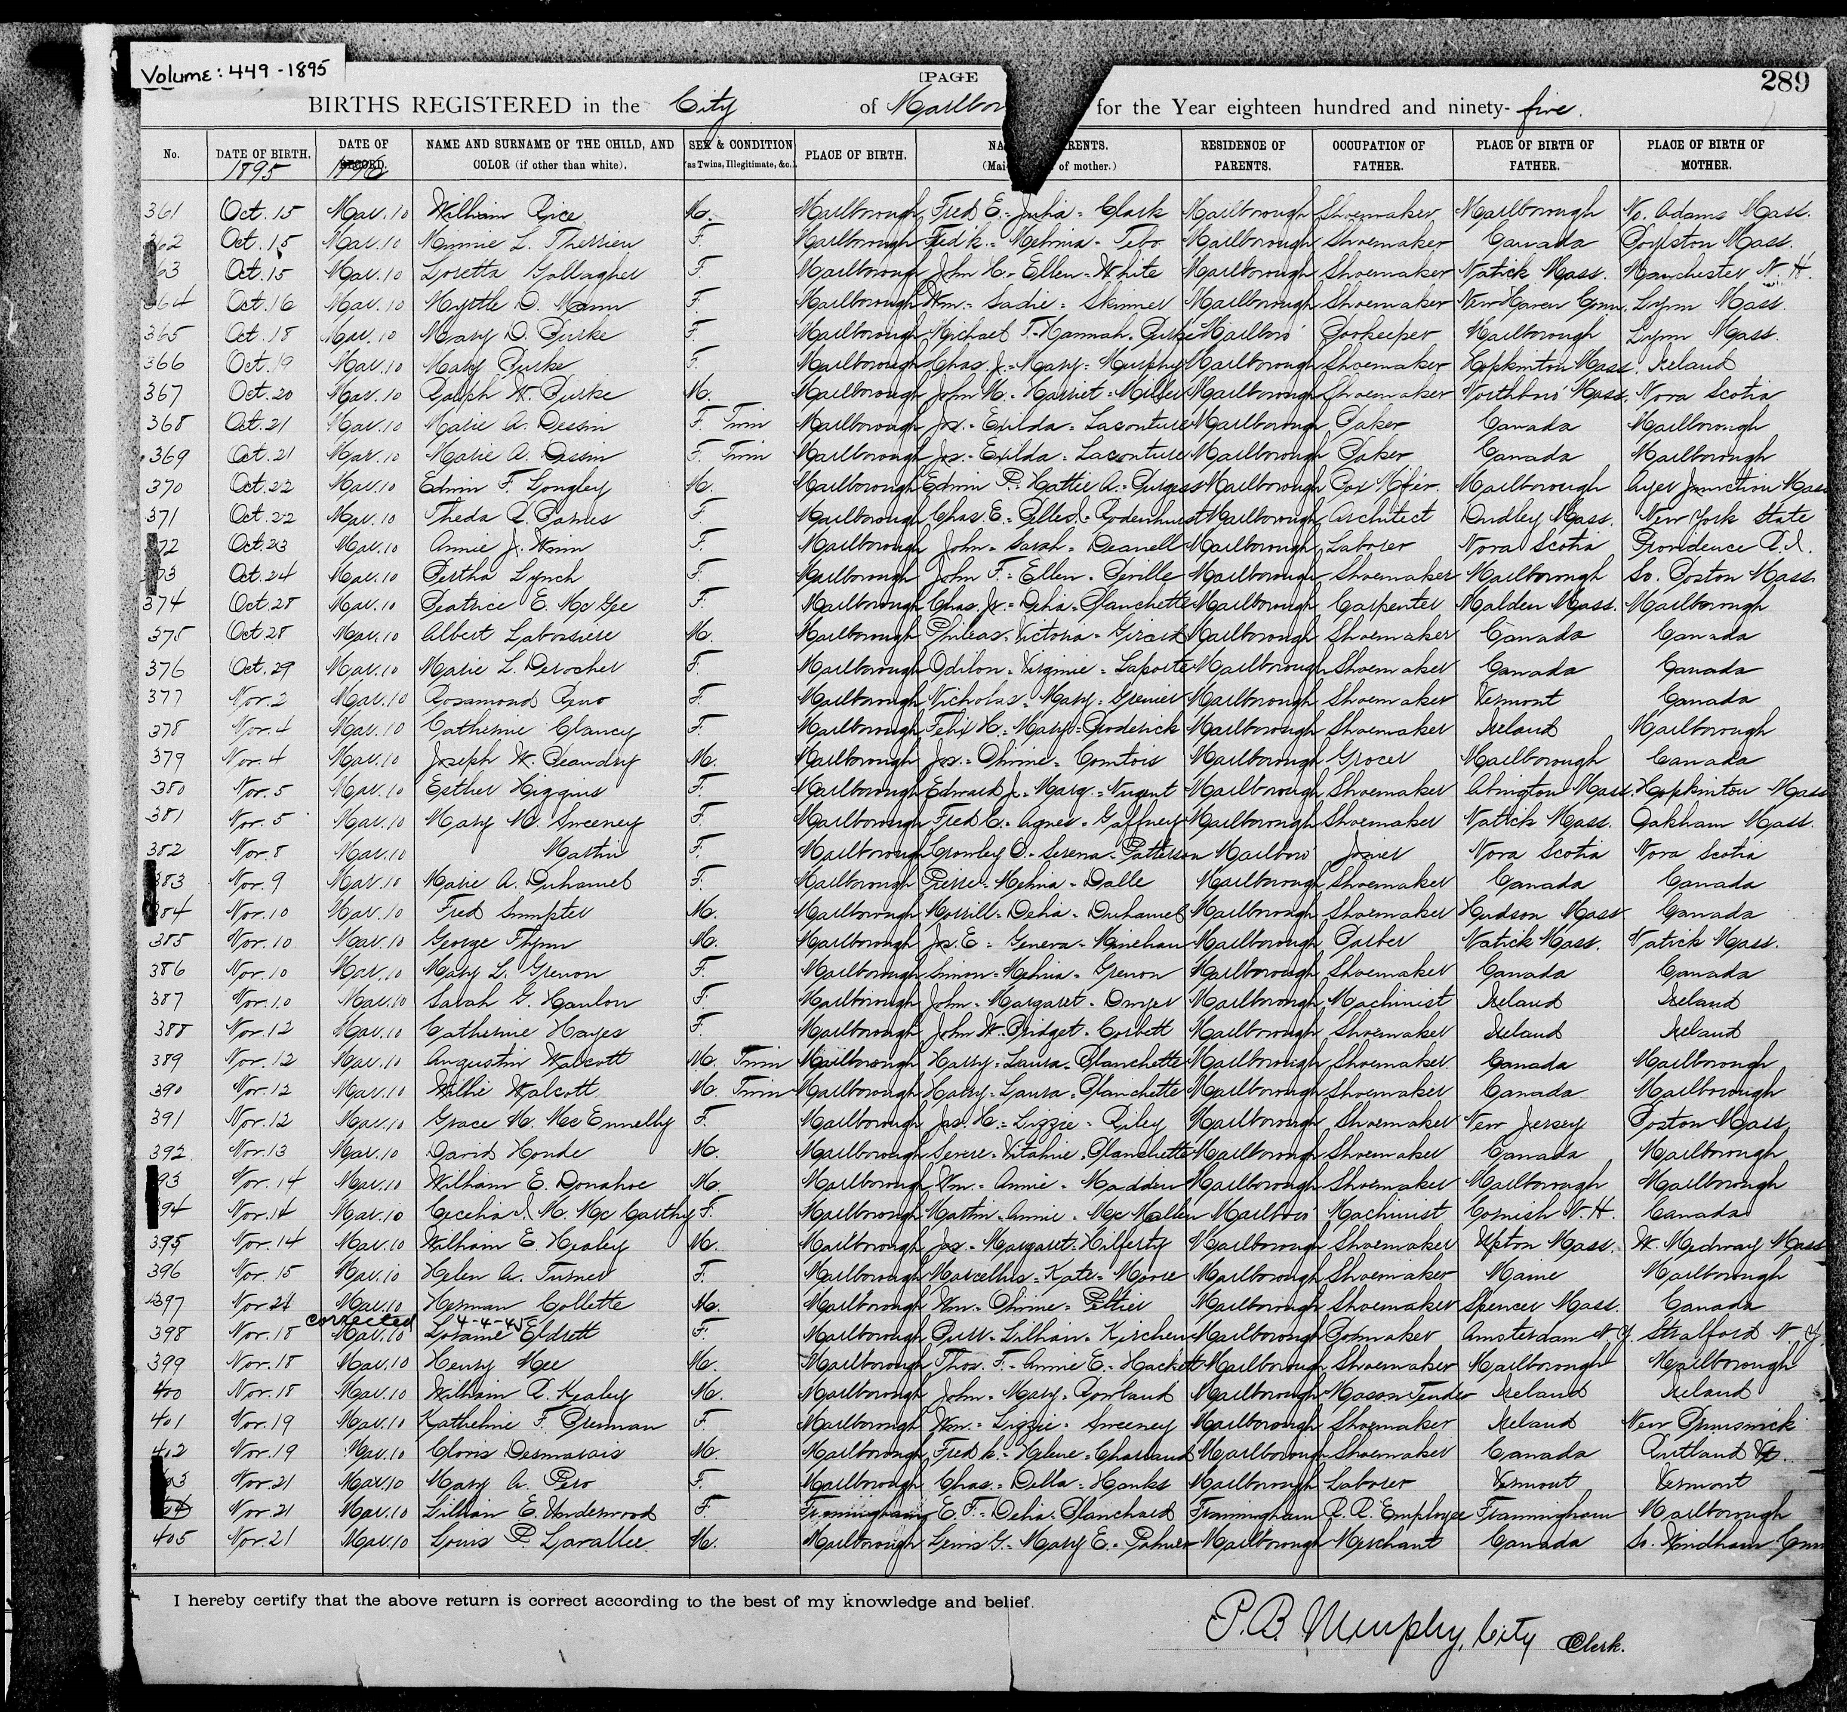 Volume: 449-1895
[PAGE
289
BIRTHS REGISTERED in the City of Marlbor for the Year eighteen hundred and ninety-five.
No. DATE OF BIRTH. DATE OF RECORD. NAME AND SURNAME OF THE CHILD, AND COLOR (if other than white). SEX & CONDITION (as Twins, Illegitimate, &c.) PLACE OF BIRTH. NA RENTS. (Mai of mother.) RESIDENCE OF PARENTS. OCCUPATION OF FATHER. PLACE BIRTH OF FATHER. PLACE OF BIRTH OF MOTHER.
1895 1896
361 Oct. 15 Mar. 10 William Rice M. Marlborough Fred E. - Julia - Clark Marlborough Shoemaker Marlborough No. Adams Mass.
362 Oct. 15 Mar. 10 Minnie L. Therrien F. Marlborough Fred'k. - Melvina - Tebo Marlborough Shoemaker Canada Boylston Mass.
363 Oct. 15 Mar. 10 Loretta Gallagher F. Marlborough John H. - Ellen - White Marlborough Shoemaker Natick Mass. Manchester N. H.
364 Oct. 16 Mar. 10 Myrtle D. Mann F. Marlborough Wm. - Sadie - Skinner Marlborough Shoemaker New Haven Conn. Lynn Mass.
365 Oct. 18 Mar. 10 Mary D. Burke F. Marlborough Michael T. - Hannah - Burke Marlboro' Bookeeper Marlborough Lynn Mass.
366 Oct. 19 Mar. 10 Mary Burke F. Marlborough Chas. J. - Mary - Murphy Marlborough Shoemaker Hopkinton Mass. Ireland
367 Oct. 20 Mar. 10 Ralph W. Burke M. Marlborough John M. - Harriet - Miller Marlborough Shoemaker Northboro' Mass. Nova Scotia
368 Oct. 21 Mar. 10 Marie A. Dessin F. Twin Marlborough Jos. - Exilda - Lacouture Marlborough Baker Canada Marlborough
369 Oct. 21 Mar. 10 Marie A. Dessin F. Twin Marlborough Jos. - Exilda - Lacouture Marlborough Baker Canada Marlborough
370 Oct. 22 Mar. 10 Edwin F. Longley M. Marlborough Edwin P. - Hattie A. - Burgess Marlborough Box M'f'er. Marlborough Ayer Junction Mass
371 Oct. 22 Mar. 10 Theda R. Barnes F. Marlborough Chas. E. - Belle J. - Rodenhurst Marlborough Architect Dudley Mass. New York State
372 Oct. 23 Mar. 10 Annie J. Winn F. Marlborough John - Sarah - Deanell Marlborough Laborer Nova Scotia Providence R. I.
373 Oct. 24 Mar. 10 Bertha Lynch F. Marlborough John F. - Ellen - Beville Marlborough Shoemaker Marlborough So. Boston Mass.
374 Oct. 28 Mar. 10 Beatrice E. McGee F. Marlborough Chas. Jr. - Delia - Blanchette Marlborough Carpenter Malden Mass. Marlborough
375 Oct. 28 Mar. 10 Albert Labossiere M. Marlborough Phileas - Victoria - Girard Marlborough Shoemaker Canada Canada
376 Oct. 29 Mar. 10 Marie L. Derocher F. Marlborough Odilon - Virginie - Laporte Marlborough Shoemaker Canada Canada
377 Nov. 2 Mar. 10 Rosamond Brno F. Marlborough Nicholas - Mary - Grenier Marlborough Shoemaker Vermont Canada
378 Nov. 4 Mar. 10 Catherine Clancy F. Marlborough Felix H. - Mary - Broderick Marlborough Shoemaker Ireland Marlborough
379 Nov. 4 Mar. 10 Joseph W. Beaudry M. Marlborough Jos. - Obrine - Comtois Marlborough Grocer Marlborough Canada
380 Nov. 5 Mar. 10 Esther Higgins F. Marlborough Edward J. - Mary - Nugent Marlborough Shoemaker Abington Mass. Hopkinton Mass
381 Nov. 5 Mar. 10 Mary M. Sweeney F. Marlborough Fred C. - Agnes - Gaffney Marlborough Shoemaker Natick Mass. Oakham Mass.
382 Nov. 8 Mar. 10 Martin F. Marlborough Crowley O. - Serena - Patterson Marlboro' Joiner Nova Scotia Nova Scotia
383 Nov. 9 Mar. 10 Marie A. Duhamel F. Marlborough Pierre - Melvina - Dalle Marlborough Shoemaker Canada Canada
384 Nov. 10 Mar. 10 Fred Sumpter M. Marlborough Morrill - Delia - Duhamel Marlborough Shoemaker Hudson Mass Canada
385 Nov. 10 Mar. 10 George Flynn M. Marlborough Jas. E. - Geneva - Minehan Marlborough Barber Natick Mass. Natick Mass.
386 Nov. 10 Mar. 10 Mary L. Grenon F. Marlborough Simon - Melvina - Grenon Marlborough Shoemaker Canada Canada
387 Nov. 10 Mar. 10 Sarah G. Hanlon F. Marlborough John - Margaret - Dwyer Marlborough Machinist Ireland Ireland
388 Nov. 12 Mar. 10 Catherine Hayes F. Marlborough John W. - Bridget - Corbett Marlborough Shoemaker Ireland Ireland
389 Nov. 12 Mar. 10 Augustin Walcott M. Twin Marlborough Harry - Laura - Blanchette Marlborough Shoemaker Canada Marlborough
390 Nov. 12 Mar. 10 Willie Walcott M. Twin Marlborough Harry - Laura - Blanchette Marlborough Shoemaker Canada Marlborough
391 Nov. 12 Mar. 10 Grace M. McEnnelly F. Marlborough Jas. H. - Lizzie - Riley Marlborough Shoemaker New Jersey Boston Mass.
392 Nov. 13 Mar. 10 David Houde M. Marlborough Severe - Vitaline - Blanchette Marlborough Shoemaker Canada Marlborough
393 Nov. 14 Mar. 10 William E. Donahoe M. Marlborough Wm. - Annie - Madden Marlborough Shoemaker Marlborough Marlborough
394 Nov. 14 Mar. 10 Cecelia I. M. McCarthy F. Marlborough Martin - Annie - McMallen Marlboro' Machinist Cornish N. H. Canada
395 Nov. 14 Mar. 10 William E. Healey M. Marlborough Jas. - Margaret - Hilferty Marlborough Shoemaker Upton Mass. W. Medway Mass
396 Nov. 15 Mar. 10 Helen A. Turner F. Marlborough Marcellus - Kate - Moore Marlborough Shoemaker Maine Marlborough
397 Nov. 21 Mar. 10 Herman Collette M. Marlborough Wm. - Obrine - Peltier Marlborough Shoemaker Spencer Mass. Canada
corrected 4-4-45
398 Nov. 18 Mar. 10 Loraine Eldrett F. Marlborough Burr - Lillian - Kirchen Marlborough Boxmaker Amsterdam N. Y. Stratford N. Y.
399 Nov. 18 Mar. 10 Henry Mee M. Marlborough Thos. F. - Annie E. - Hackett Marlborough Shoemaker Marlborough Marlborough
400 Nov. 18 Mar. 10 William R. Healey M. Marlborough John - Mary - Rowland Marlborough Mason Tender Ireland Ireland
401 Nov. 19 Mar. 10 Katherine F. Brennan F. Marlborough Wm. - Lizzie - Sweeney Marlborough Shoemaker Ireland New Brunswick
402 Nov. 19 Mar. 10 Cloris Desmarais M. Marlborough Fred k. - Helene - Charland Marlborough Shoemaker Canada Rutland Vt.
403 Nov. 21 Mar. 10 Mary A. Pero F. Marlborough Chas. - Della - Hanks Marlborough Laborer Vermont Vermont
404 Nov. 21 Mar. 10 Lillian E. Underwood F. Framingham E. F. - Delia - Blanchard Framingham R. R. Employee Framingham Marlborough
405 Nov. 21 Mar. 10 Louis P. Lavallee M. Marlborough Lewis G. - Mary E. - Palmer Marlborough Merchant Canada So. Windham Conn
I hereby certify that the above return is correct according to the best of my knowledge and belief.
P. B. Murphy, City Clerk.